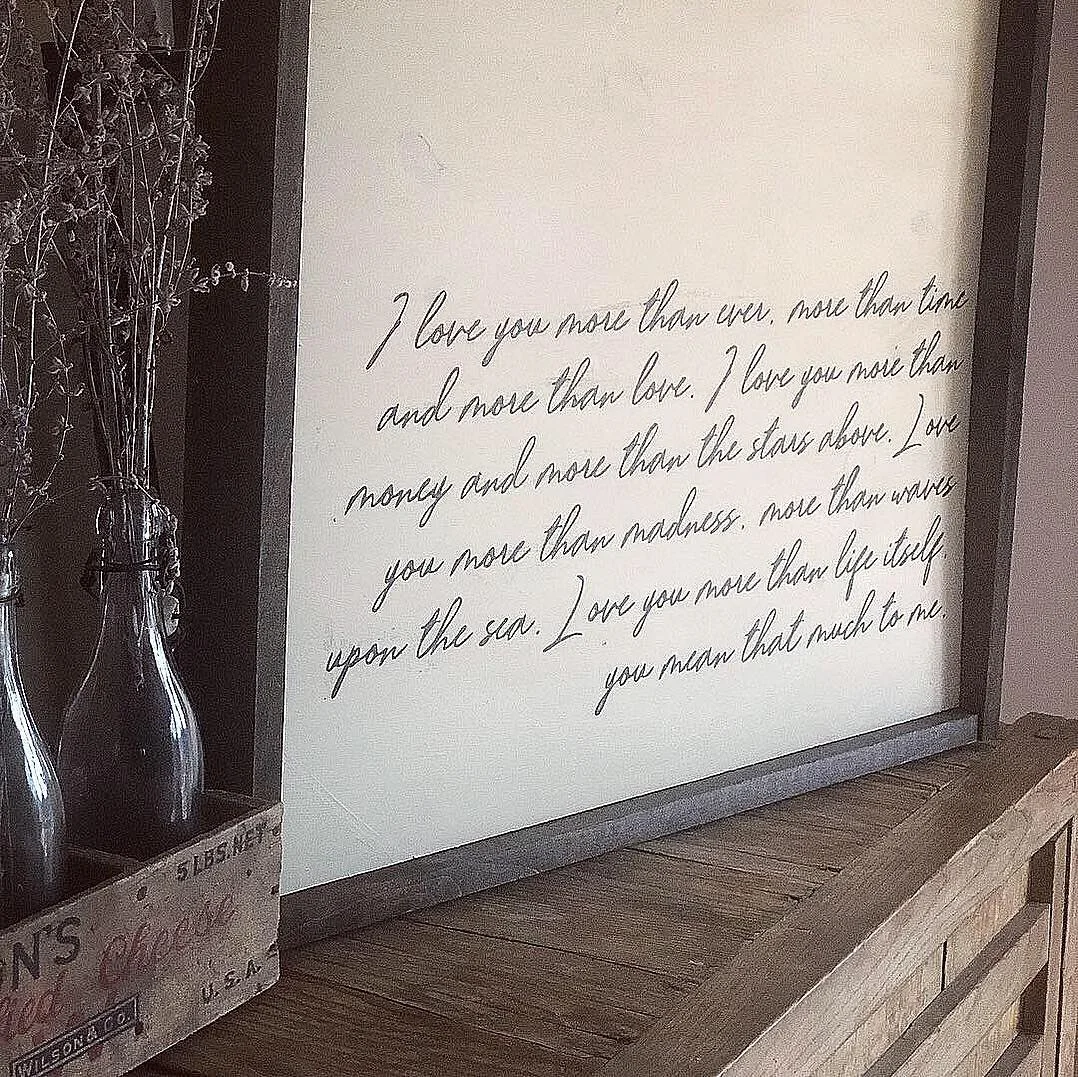 I love you more than ever, more than time
and more than love. I love you more than
money and more than the stars above. Love
you more than madness, more than waves
upon the sea. Love you more than life itself
you mean that much to me.
5 LBS.NET
ON'S
Cheese
U.S.A.
WILSON & CO.